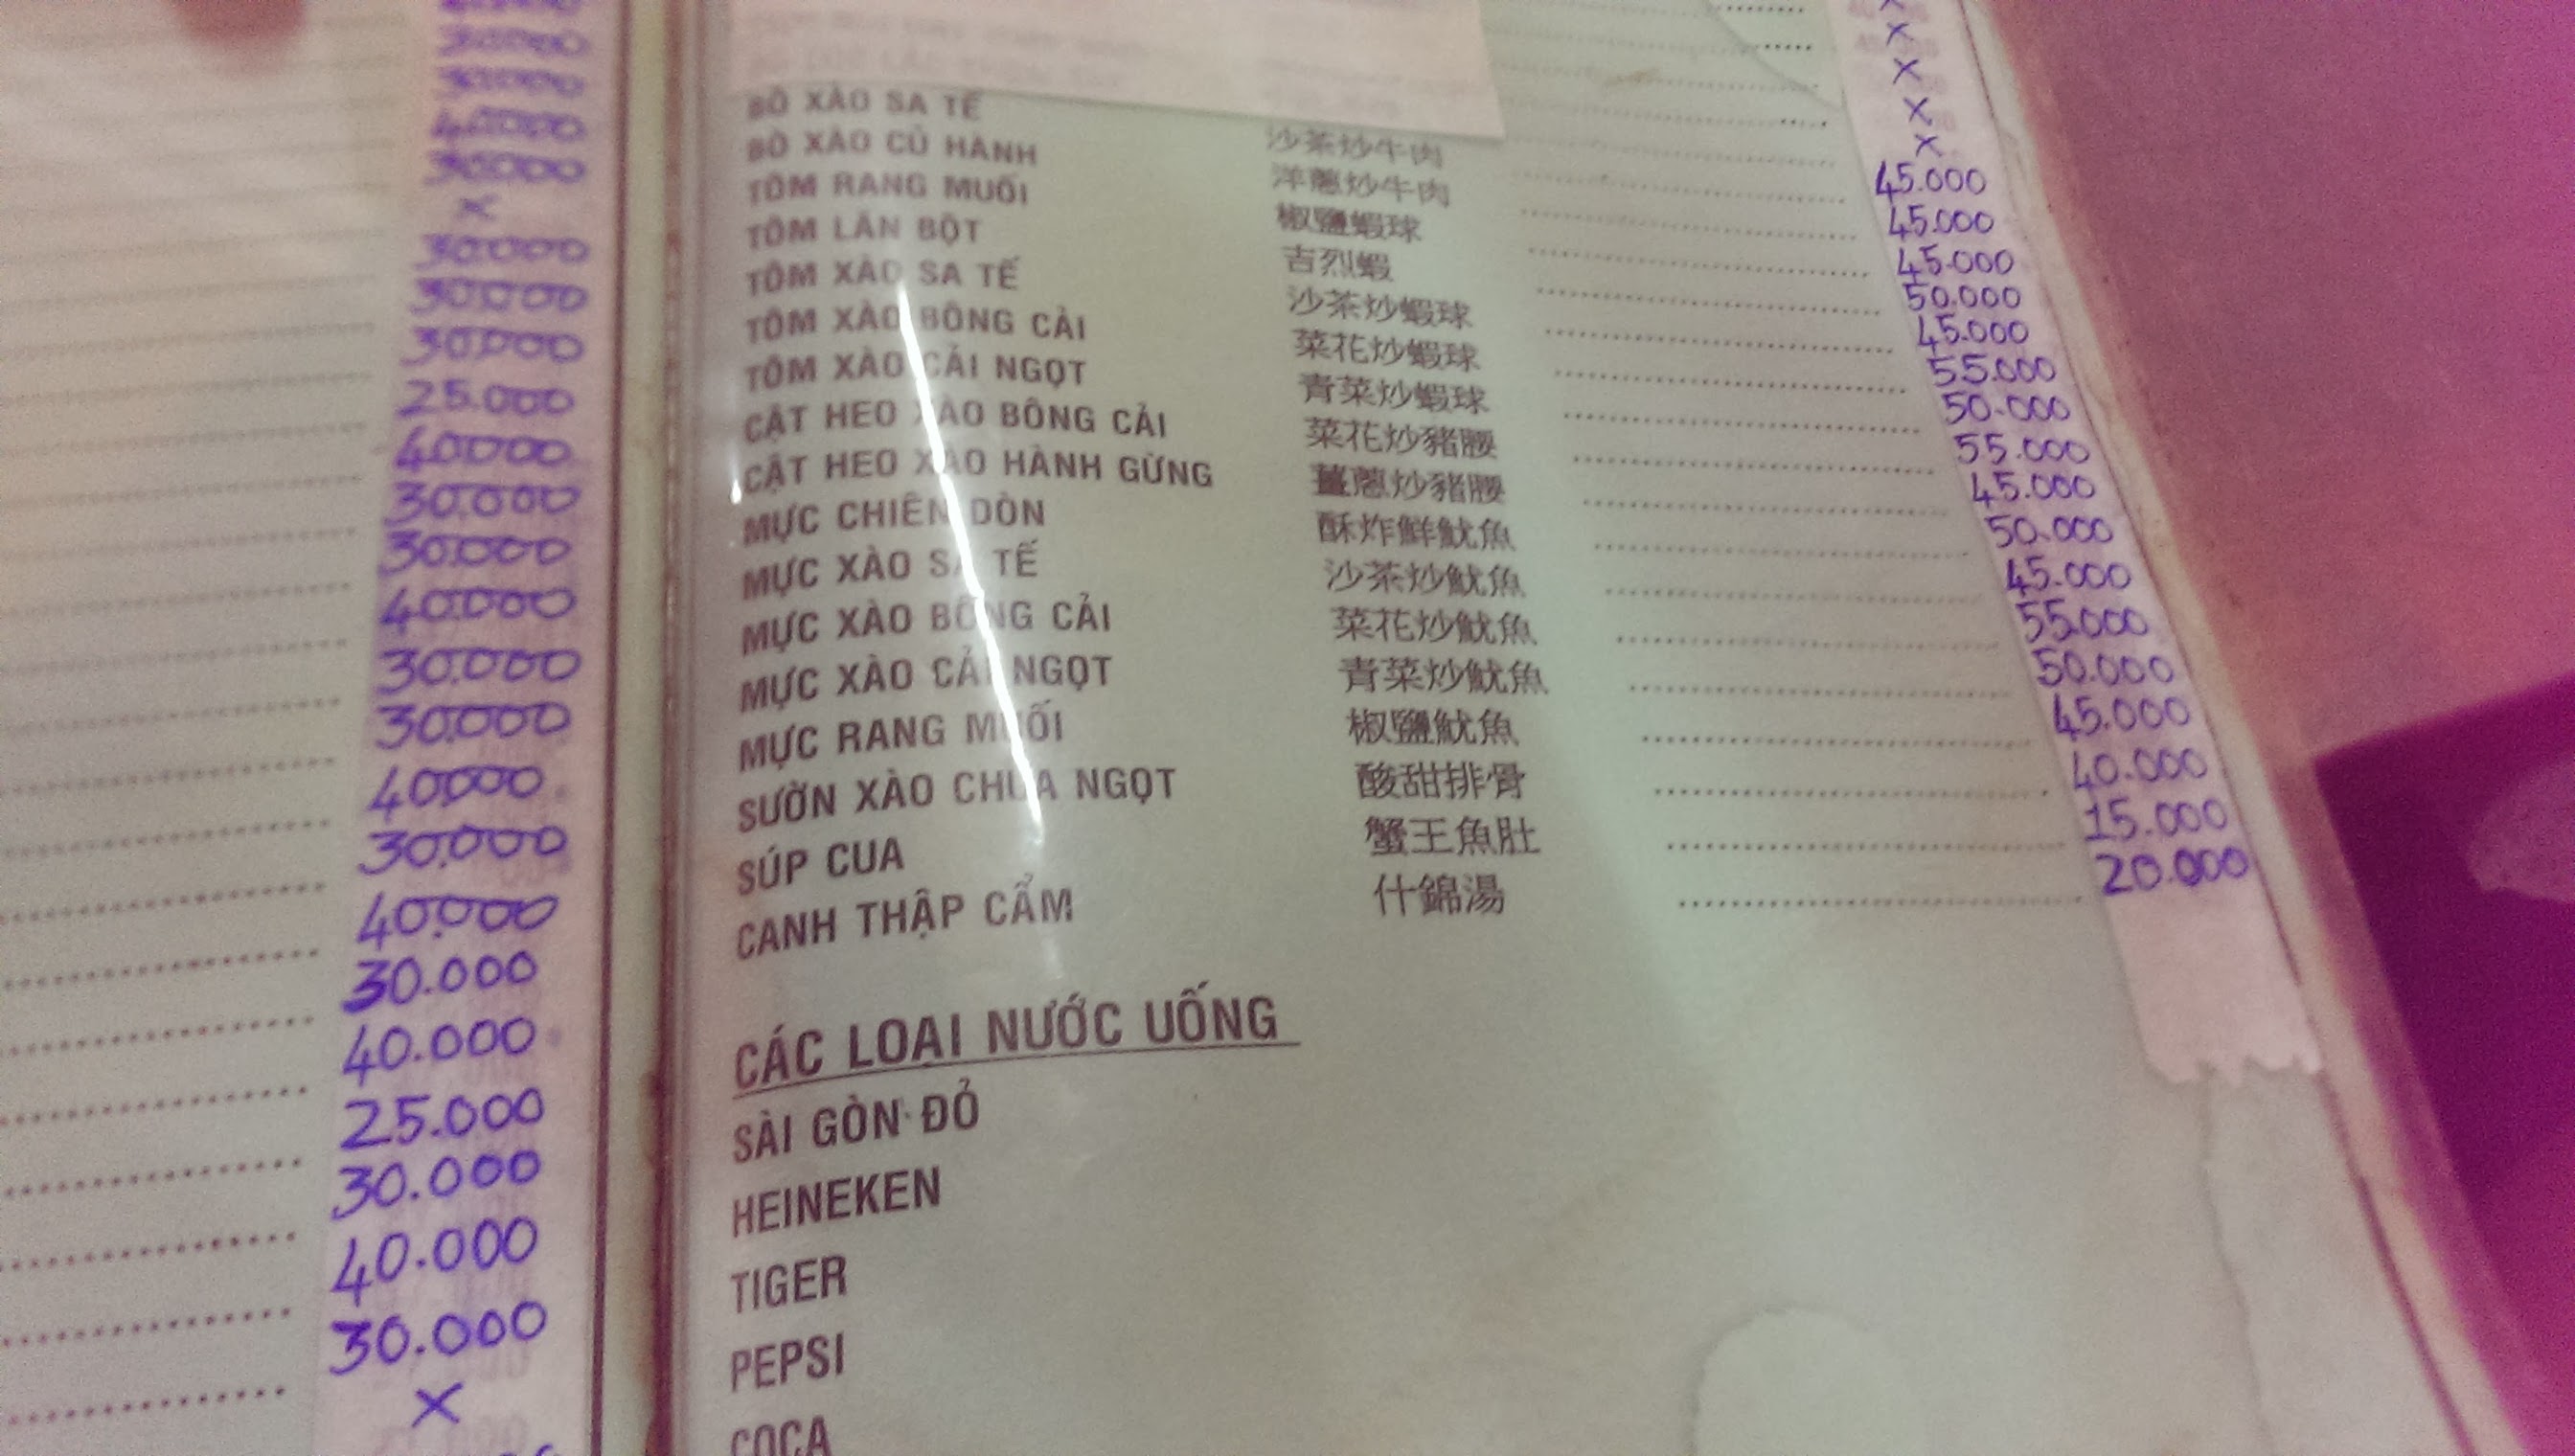 30.000
30.000
40.000
30.000
x
30.000
30.000
30.000
25.000
40.000
30.000
30.000
40.000
30.000
30.000
40.000
30.000
40.000
30.000
40.000
25.000
30.000
40.000
30.000
x
x
x
x
x
BÒ XÀO SA TẾ 沙茶炒牛肉 45.000
BÒ XÀO CỦ HÀNH 洋蔥炒牛肉 45.000
TÔM RANG MUỐI 椒鹽蝦球 45.000
TÔM LĂN BỘT 吉烈蝦 50.000
TÔM XÀO SA TẾ 沙茶炒蝦球 45.000
TÔM XÀO BÔNG CẢI 菜花炒蝦球 55.000
TÔM XÀO CẢI NGỌT 青菜炒蝦球 50.000
CẬT HEO XÀO BÔNG CẢI 菜花炒豬腰 55.000
CẬT HEO XÀO HÀNH GỪNG 薑蔥炒豬腰 45.000
MỰC CHIÊN DÒN 酥炸鮮魷魚 50.000
MỰC XÀO SA TẾ 沙茶炒魷魚 45.000
MỰC XÀO BÔNG CẢI 菜花炒魷魚 55.000
MỰC XÀO CẢI NGỌT 青菜炒魷魚 50.000
MỰC RANG MUỐI 椒鹽魷魚 45.000
SƯỜN XÀO CHUA NGỌT 酸甜排骨 40.000
SÚP CUA 蟹王魚肚 15.000
CANH THẬP CẨM 什錦湯 20.000
CÁC LOẠI NƯỚC UỐNG
SÀI GÒN ĐỎ
HEINEKEN
TIGER
PEPSI
COCA